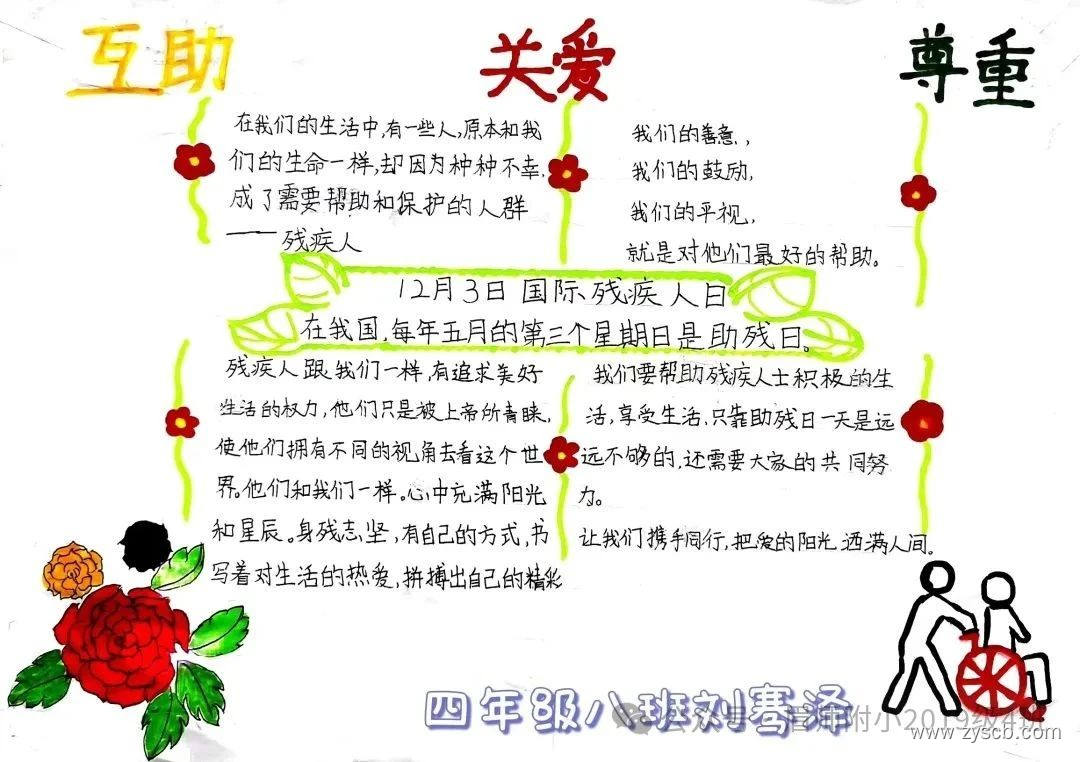 互助
关爱
尊重
在我们的生活中,有一些人,原本和我
们的生命一样,却因为种种不幸,
成了需要帮助和保护的人群
——残疾人
我们的善意,
我们的鼓励,
我们的平视,
就是对他们最好的帮助。
12月3日国际残疾人日
在我国,每年五月的第三个星期日是助残日。
残疾人跟我们一样,有追求美好
生活的权力,他们只是被上帝所青睐,
使他们拥有不同的视角去看这个世
界。他们和我们一样。心中充满阳光
和星辰。身残志坚,有自己的方式,书
写着对生活的热爱,拼搏出自己的精彩
我们要帮助残疾人士积极的生
活,享受生活,只靠助残日一天是远
远不够的,还需要大家的共同努
力。
让我们携手同行,把爱的阳光洒满人间。
四年级八班刘骞泽
公众号·晋师附小2019级4班
www.zyscb.com